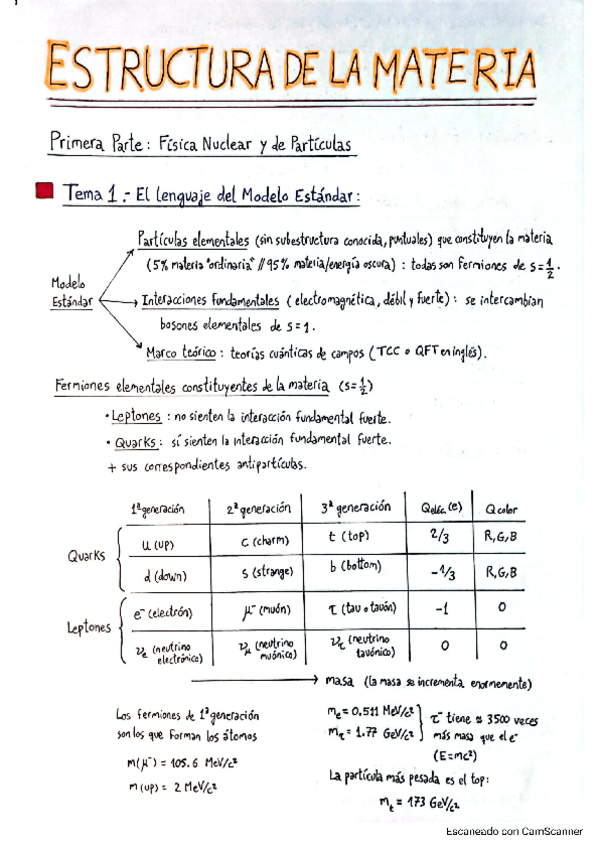 ESTRUCTURA DE LA MATERIA
Primera Parte: Física Nuclear y de Partículas
Tema 1.- El lenguaje del Modelo Estándar:
Partículas elementales (sin subestructura conocida, puntuales) que constituyen la materia
(5% materia "ordinaria" // 95% materia/energía oscura) : todas son fermiones de s=1/2.
Modelo
Estándar
Interacciones fundamentales (electromagnética, débil y fuerte) : se intercambian
bosones elementales de s=1.
Marco teórico : teorías cuánticas de campos (TCC o QFT en inglés).
Fermiones elementales constituyentes de la materia (s=1/2)
• Leptones : no sienten la interacción fundamental fuerte.
• Quarks : sí sienten la interacción fundamental fuerte.
+ sus correspondientes antipartículas.
1ª generación 2ª generación 3ª generación Qeléc.(e) Q color
Quarks
u (up) c (charm) t (top) 2/3 R,G,B
d (down) s (strange) b (bottom) -1/3 R,G,B
Leptones
e⁻ (electrón) μ⁻ (muón) τ (tau o tauón) -1 0
νe (neutrino electrónico) νμ (neutrino muónico) ντ (neutrino tauónico) 0 0
masa (la masa se incrementa enormemente)
Los fermiones de 1ª generación
son los que forman los átomos
m(μ⁻) = 105.6 MeV/c²
m(up) = 2 MeV/c²
me = 0.511 MeV/c²
mτ = 1.77 GeV/c²
τ⁻ tiene ≈ 3500 veces
más masa que el e⁻
(E=mc²)
La partícula más pesada es el top:
mt = 173 GeV/c²
Escaneado con CamScanner